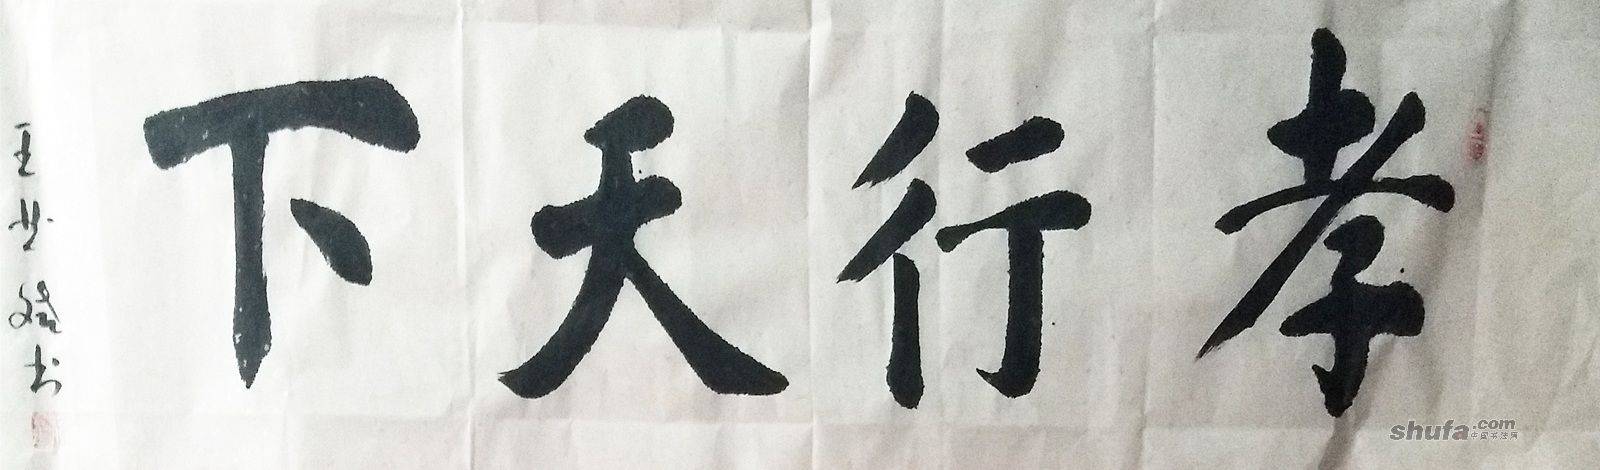 孝行天下
王世斌书
shufa.com
中国书法网